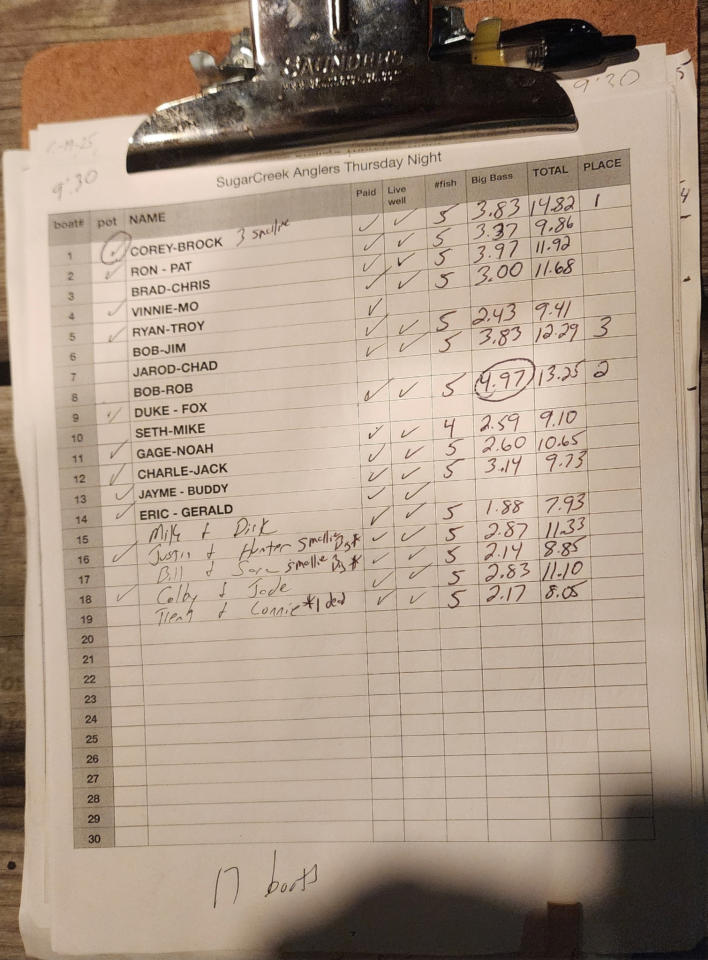 SAUNDERS
9:30
9:30
SugarCreek Anglers Thursday Night
boat# pot NAME Paid Live well #fish Big Bass TOTAL PLACE
1 ✓ COREY-BROCK 3 smallie ✓ ✓ 5 3.83 14.82 1
2 ✓ RON - PAT ✓ ✓ 5 3.37 9.86
3 BRAD-CHRIS ✓ ✓ 5 3.97 11.92
4 ✓ VINNIE-MO ✓ ✓ 5 3.00 11.68
5 ✓ RYAN-TROY ✓
6 BOB-JIM ✓ ✓ 5 2.43 9.41
7 JAROD-CHAD ✓ ✓ 5 3.83 12.29 3
8 BOB-ROB
9 ✓ DUKE - FOX ✓ ✓ 5 4.97 13.25 2
10 SETH-MIKE
11 ✓ GAGE-NOAH ✓ ✓ 4 2.59 9.10
12 ✓ CHARLE-JACK ✓ ✓ 5 2.60 10.65
13 ✓ JAYME - BUDDY ✓ ✓ 5 3.14 9.73
14 ✓ ERIC - GERALD ✓ ✓
15 & Dirk ✓ ✓ 5 1.88 7.93
16 ✓ Justin & Hunter smallie ✓ ✓ 5 2.87 11.33
17 Bill & smallie ✓ ✓ 5 2.14 8.85
18 ✓ Colby & Jade ✓ ✓ 5 2.83 11.10
19 & Connie *1 ded ✓ ✓ 5 2.17 8.05
20
21
22
23
24
25
26
27
28
29
30
17 boats